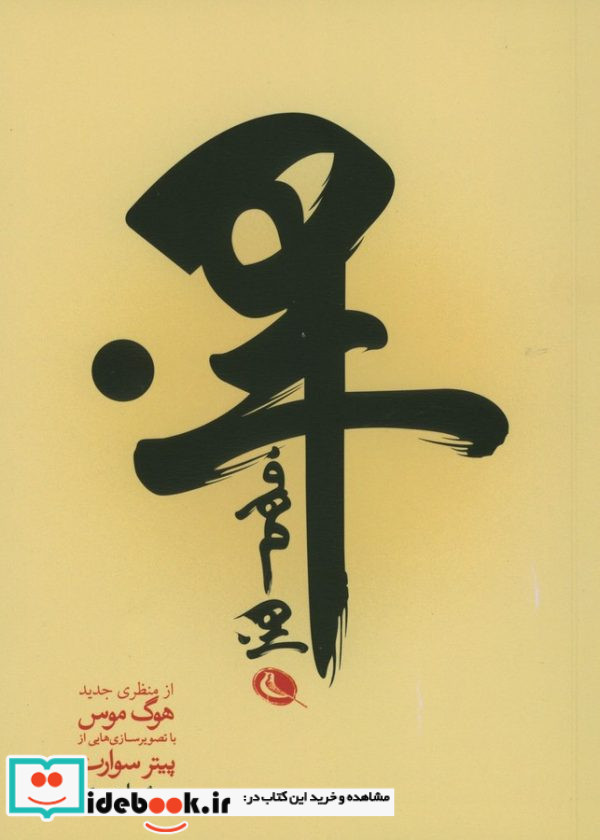 هنر
فهم
هنر
از منظری جدید
هوگ موس
با تصویرسازی‌هایی از
پیتر سوارت
مشاهده و خرید این کتاب در:
idebook.ir